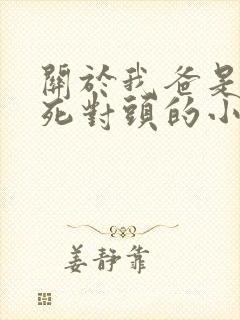 關於我爸是
死對頭的小
姜靜靠